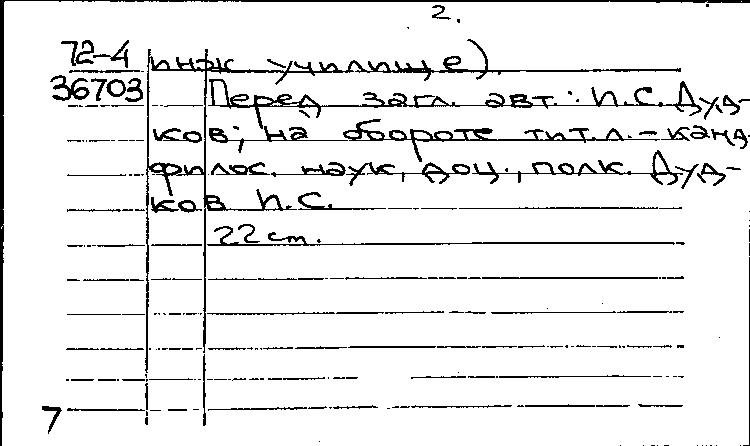 2.
72-4 инж училище).
36703 Перед загл. авт.: И.С. Дуд-
ков; на обороте тит.л. - канд.
филос. наук, доц., полк. Дуд-
ков И.С.
22 cm.
7